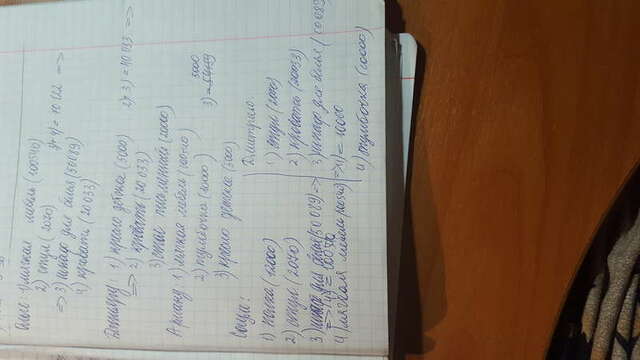 Ольге: 1) мягкая мебель (100540)
2) стул (2070) 3)+4) = 70122 =>
=> 3) шкаф для белья (50089)
4) кровать (20033)
1) кресло детское (5000) 2)+3) = 40033 =>
=> 2) кровать (20033)
3) стол письменный (20000)
Ариану: 1) мягкая мебель
2) тумбочка (10000) 3000
3) кресло детское (5000) 3) =
1) полка (12000)
2) стул (2070)
3) шкаф для белья (50089) =>
4) мягкая мебель
Дмитрию:
1) стул (2070)
2) кровать (20033)
3) шкаф для белья
=> 4) = 10000
4) тумбочка (10000)